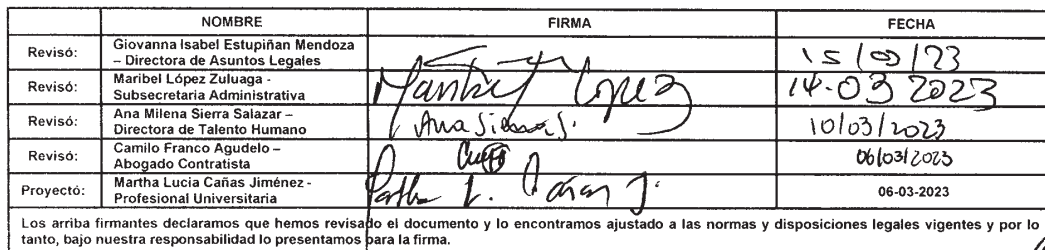 NOMBRE FIRMA FECHA
Revisó: Giovanna Isabel Estupiñan Mendoza
– Directora de Asuntos Legales 15/03/23
Revisó: Maribel López Zuluaga -
Subsecretaria Administrativa Maribel López 14-03 2023
Revisó: Ana Milena Sierra Salazar –
Directora de Talento Humano Ana Sierra S. 10/03/2023
Revisó: Camilo Franco Agudelo –
Abogado Contratista 06/03/2023
Proyectó: Martha Lucia Cañas Jiménez -
Profesional Universitaria Martha L. Cañas J. 06-03-2023
Los arriba firmantes declaramos que hemos revisado el documento y lo encontramos ajustado a las normas y disposiciones legales vigentes y por lo
tanto, bajo nuestra responsabilidad lo presentamos para la firma.